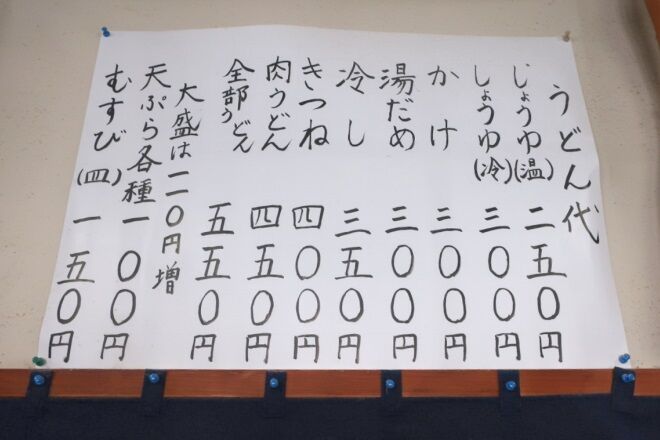 うどん代
じょうゆ(温) 二五〇円
しょうゆ(冷) 三〇〇円
かけ 三〇〇円
湯だめ 三〇〇円
冷し 三五〇円
きつね 四〇〇円
肉うどん 四五〇円
全部うどん 五五〇円
大盛は二〇円増
天ぷら各種 一〇〇円
むすび(皿) 一五〇円